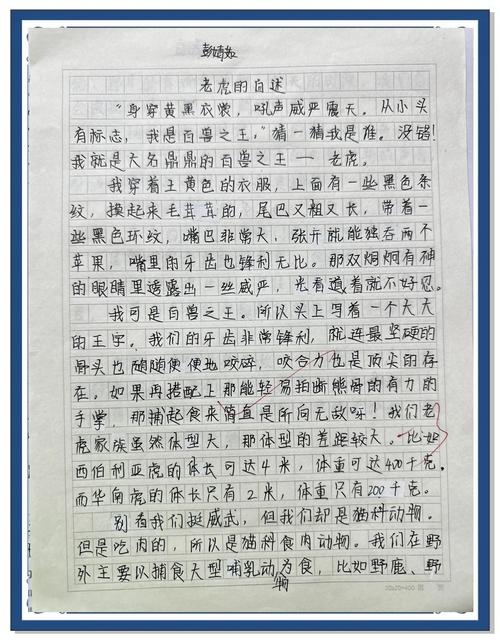 彭婧如
老虎的自述
“身穿黄黑衣裳,吼声威严震天。从小头
有标志,我是百兽之王,”猜一猜我是谁。没错!
我就是大名鼎鼎的百兽之王——老虎。
我穿着土黄色的衣服,上面有一些黑色条
纹,摸起来毛茸茸的,尾巴又粗又长,带着一
些黑色环纹,嘴巴非常大,张开就能独吞两个
苹果,嘴里的牙齿也锋利无比。那双炯炯有神
的眼睛里透露出一丝威严,光看着就不好忍。
我可是百兽之王。所以头上写着一个大大
的王字。我们的牙齿非常锋利,就连最坚硬的
骨头也随随便便地咬碎,咬合力也是顶尖的存
在。如果再搭配上那能轻易拍断熊骨的有力的
手掌,那捕起食来简直是所向无敌呀!我们老
虎家族虽然体型大,那体型的差距较大。比如
西伯利亚虎的体长可达4米,体重可达400千克。
而华南虎的体长只有2米,体重只有200千克。
别看我们挺威武,但我们却是猫科动物。
但是吃肉的,所以是猫科食肉动物。我们在野
外主要以捕食大型哺乳动为食,比如野鹿、野
物
20×20=400